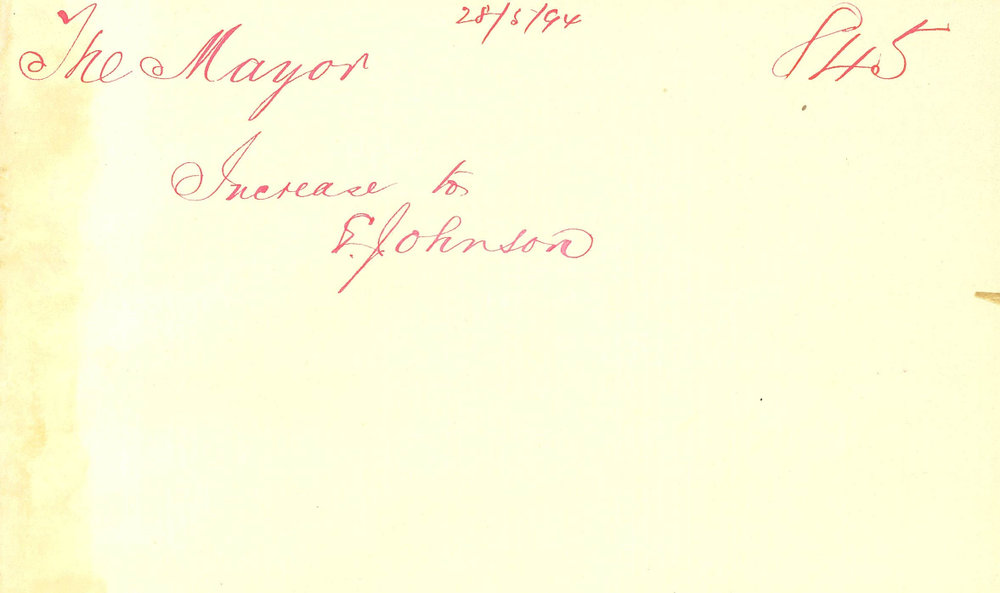 28/5/94
The Mayor 845
Increase to
E. Johnson